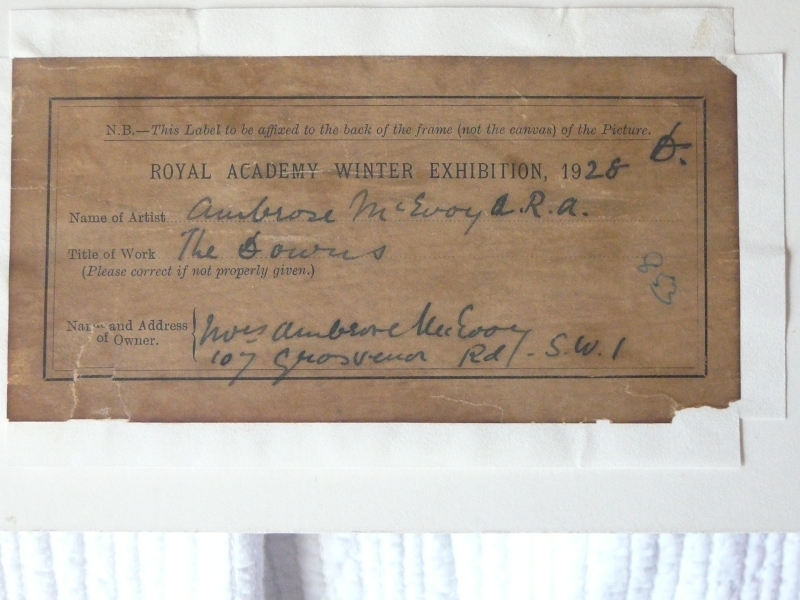 N.B.—This Label to be affixed to the back of the frame (not the canvas) of the Picture.
ROYAL ACADEMY WINTER EXHIBITION, 1928 D.
Name of Artist Ambrose McEvoy A.R.A.
Title of Work The Downs
(Please correct if not properly given.)
Name and Address of Owner.
Mrs Ambrose McEvoy
107 Grosvenor Rd. S.W.1